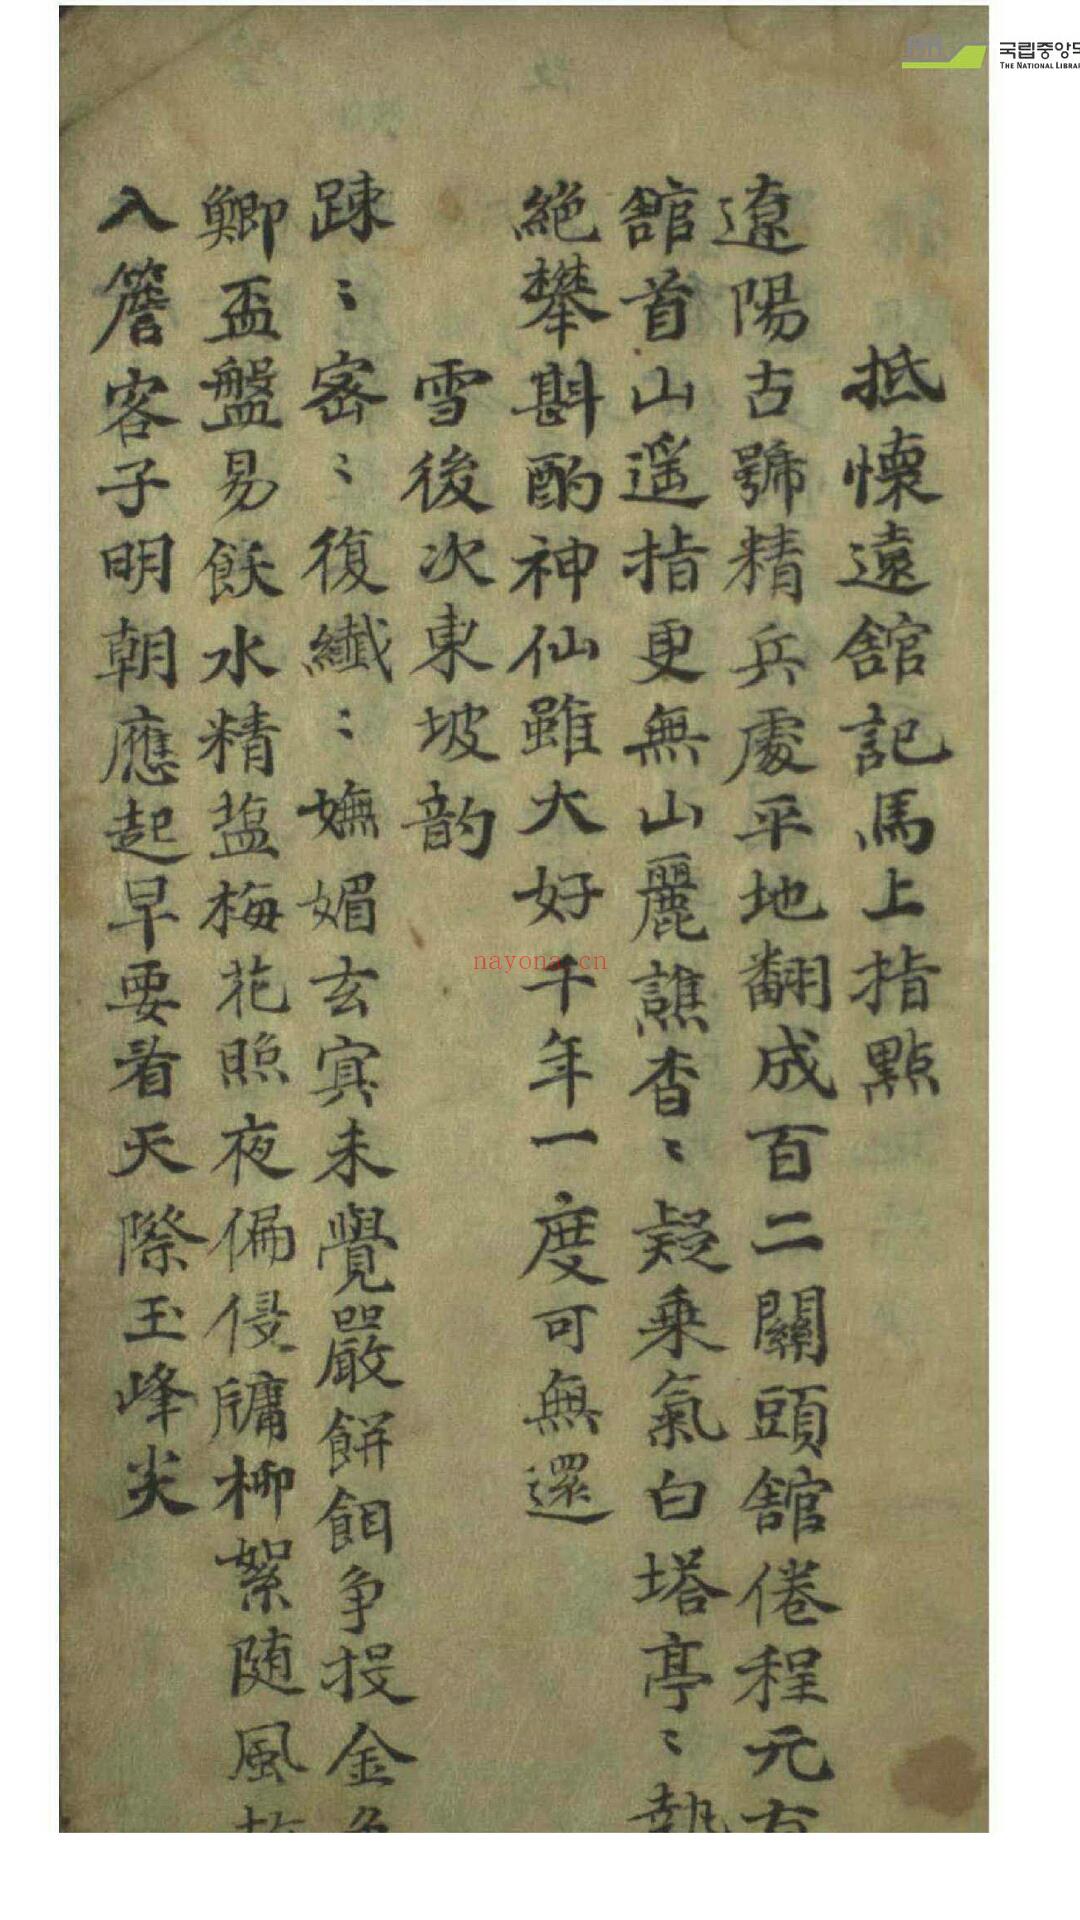 抵懷遠舘記馬上指點
遼陽古號精兵處平地翻成百二關頭舘倦程元有
舘首山遥指更無山麗譙杳〻疑乗氣白塔亭〻勢
絶攀斟酌神仙雖大好千年一度可無還
雪後次東坡韵
踈〻密〻復纖〻嫵媚玄冥未覺嚴餅餌争投金
鄉盃盤易飫水精蓝梅花照夜偏侵牗柳絮随風
入簷客子明朝應起早要看天際玉峰尖
국립중앙도
THE NATIONAL LIBRA
nayona.cn